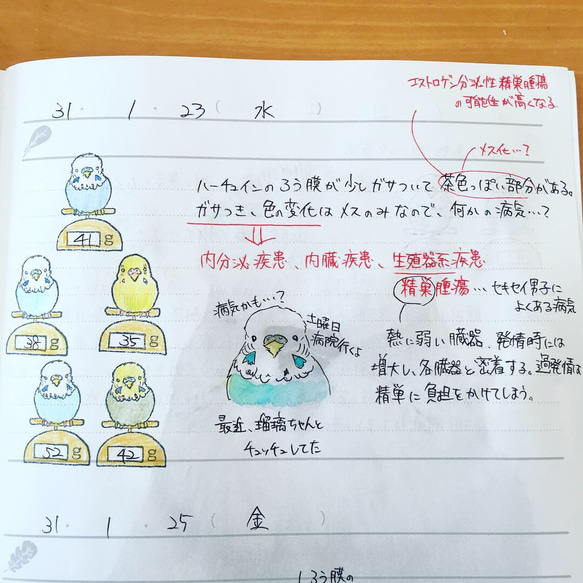 31・1・23(水)
エストロゲン分泌性精巣腫瘍
の可能性が高くなる
メス化…?
ハーチュインのろう膜が少しガサついて茶色っぽい部分がある。
ガサつき、色の変化はメスのみなので、何かの病気…?
内分泌疾患、内臓疾患、生殖器系疾患
精巣腫瘍…セキセイ男子に
よくある病気
熱に弱い臓器、発情時には
増大し、各臓器と密着する。過発情は
精巣に負担をかけてしまう。
41g
38g
35g
52g
42g
病気かも…?
土曜日
病院行くよ
最近、瑠璃ちゃんと
チュッチュしてた
31・1・25(金)
ろう膜の